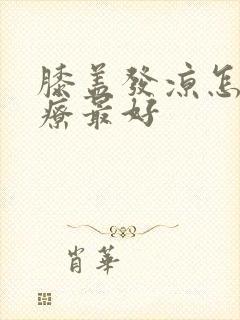 膝盖發凉怎
療最好
肖華